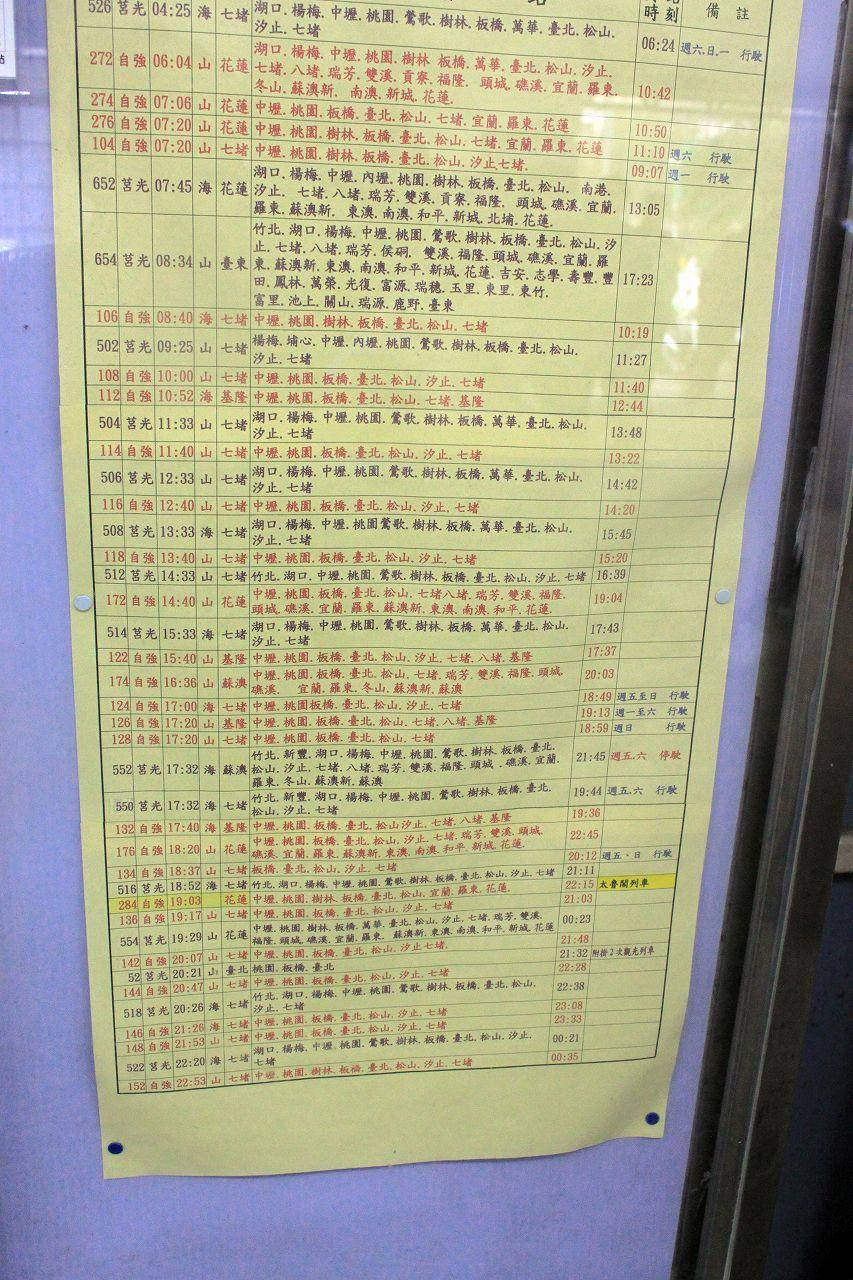 時刻 備註
526 莒光 04:25 海 七堵 湖口.楊梅.中壢.桃園.鶯歌.樹林.板橋.萬華.臺北.松山.
汐止.七堵 06:24 週六.日.一 行駛
272 自強 06:04 山 花蓮 湖口.楊梅.中壢.桃園.樹林 板橋.萬華.臺北.松山.汐止.
七堵.八堵.瑞芳.雙溪.貢寮.福隆. 頭城.礁溪.宜蘭.羅東.
冬山.蘇澳新. 南澳.新城.花蓮. 10:42
274 自強 07:06 山 花蓮 中壢.桃園.板橋.臺北.松山.七堵.宜蘭.羅東.花蓮 10:50
276 自強 07:20 山 花蓮 中壢.桃園.樹林.板橋.臺北.松山.七堵.宜蘭.羅東.花蓮 11:10 週六 行駛
104 自強 07:20 山 七堵 中壢.桃園.樹林.板橋.臺北.松山.汐止七堵. 09:07 週一 行駛
652 莒光 07:45 海 花蓮 湖口.楊梅.中壢.內壢.桃園.樹林.板橋.臺北.松山. 南港.
汐止. 七堵.八堵.瑞芳.雙溪.貢寮.福隆. 頭城.礁溪.宜蘭.
羅東.蘇澳新. 東澳.南澳.和平.新城.北埔.花蓮. 13:05
654 莒光 08:34 山 臺東 竹北.湖口.楊梅.中壢.桃園.鶯歌.樹林.板橋.臺北.松山.汐
止.七堵.八堵.瑞芳.侯硐. 雙溪.福隆.頭城.礁溪.宜蘭.羅
東.蘇澳新.東澳.南澳.和平.新城.花蓮.吉安.志學.壽豐.豐
田.鳳林.萬榮.光復.富源.瑞穗.玉里.東里.東竹.
富里.池上.關山.瑞源.鹿野.臺東 17:23
106 自強 08:40 海 七堵 中壢.桃園.樹林.板橋.臺北.松山.七堵 10:19
502 莒光 09:25 山 七堵 楊梅.埔心.中壢.內壢.桃園.鶯歌.樹林.板橋.臺北.松山.
汐止.七堵 11:27
108 自強 10:00 山 七堵 中壢.桃園.板橋.臺北.松山.汐止.七堵 11:40
112 自強 10:52 海 基隆 中壢.桃園.板橋.臺北.松山.七堵.基隆 12:44
504 莒光 11:33 山 七堵 湖口.楊梅.中壢.桃園.鶯歌.樹林.板橋.萬華.臺北.松山.
汐止.七堵 13:48
114 自強 11:40 山 七堵 中壢.桃園.板橋.臺北.松山.汐止.七堵 13:22
506 莒光 12:33 山 七堵 湖口.楊梅.中壢.桃園.鶯歌.樹林.板橋.萬華.臺北.松山.
汐止.七堵 14:42
116 自強 12:40 山 七堵 中壢.桃園.板橋.臺北.松山.汐止.七堵 14:20
508 莒光 13:33 海 七堵 湖口.楊梅.中壢.桃園鶯歌.樹林.板橋.萬華.臺北.松山.
汐止.七堵 15:45
118 自強 13:40 山 七堵 中壢.桃園.板橋.臺北.松山.汐止.七堵 15:20
512 莒光 14:33 山 七堵 竹北.湖口.中壢.桃園.鶯歌.樹林.板橋.臺北.松山.汐止.七堵 16:39
172 自強 14:40 山 花蓮 中壢.桃園.板橋.臺北.松山.七堵八堵.瑞芳.雙溪.福隆.
頭城.礁溪.宜蘭.羅東.蘇澳新.東澳.南澳.和平.花蓮. 19:04
514 莒光 15:33 海 七堵 湖口.楊梅.中壢.桃園.鶯歌.樹林.板橋.萬華.臺北.松山.
汐止.七堵 17:43
122 自強 15:40 山 基隆 中壢.桃園.板橋.臺北.松山.汐止.七堵.八堵.基隆 17:37
174 自強 16:36 山 蘇澳 中壢.桃園.板橋.臺北.松山.七堵.瑞芳.雙溪.福隆.頭城.
礁溪. 宜蘭.羅東.冬山.蘇澳新.蘇澳 20:03
124 自強 17:00 海 七堵 中壢.桃園板橋.臺北.松山.汐止.七堵 18:49 週五至日 行駛
126 自強 17:20 山 基隆 中壢.桃園.板橋.臺北.松山.七堵.八堵.基隆 19:13 週一至六 行駛
128 自強 17:20 山 七堵 中壢.桃園.板橋.臺北.松山.七堵 18:59 週日 行駛
552 莒光 17:32 海 蘇澳 竹北.新豐.湖口.楊梅.中壢.桃園.鶯歌.樹林.板橋.臺北.
松山.汐止.七堵.八堵.瑞芳.雙溪.福隆.頭城.礁溪.宜蘭.
羅東.冬山.蘇澳新.蘇澳 21:45 週五.六 停駛
550 莒光 17:32 海 七堵 竹北.新豐.湖口.楊梅.中壢.桃園.鶯歌.樹林.板橋.臺北.
松山.汐止.七堵 19:44 週五.六 行駛
132 自強 17:40 海 基隆 中壢.桃園.板橋.臺北.松山汐止.七堵.八堵.基隆 19:36
176 自強 18:20 山 花蓮 中壢.桃園.板橋.臺北.松山.汐止.七堵.瑞芳.雙溪.頭城.
礁溪.宜蘭.羅東.蘇澳新.東澳.南澳.和平.新城.花蓮. 22:45
134 自強 18:37 山 七堵 板橋.臺北.松山.汐止.七堵 20:12 週五、日 行駛
516 莒光 18:52 海 七堵 竹北.湖口.楊梅.中壢.桃園.鶯歌.樹林.板橋.臺北.松山.汐止.七堵 21:11
284 自強 19:03 花蓮 中壢.桃園.樹林.板橋.臺北.松山.宜蘭.羅東.花蓮. 22:15 太魯閣列車
136 自強 19:17 山 七堵 中壢.桃園.板橋.臺北.松山.汐止.七堵 21:03
554 莒光 19:29 山 花蓮 中壢.桃園.樹林.板橋.萬華.臺北.松山.汐止.七堵.瑞芳.雙溪.
福隆.頭城.礁溪.宜蘭.羅東. 蘇澳新.東澳.南澳.和平.新城.花蓮 00:23
142 自強 20:07 山 七堵 中壢.桃園.板橋.臺北.松山.汐止七堵. 21:48
52 莒光 20:21 山 臺北 桃園.板橋.臺北 21:32 附掛2次觀光列車
144 自強 20:47 山 七堵 中壢.桃園.板橋.臺北.松山.汐止.七堵 22:28
518 莒光 20:26 海 七堵 竹北.湖口.楊梅.中壢.桃園.鶯歌.樹林.板橋.臺北.松山.
汐止.七堵 22:38
146 自強 21:26 海 七堵 中壢.桃園.板橋.臺北.松山.汐止.七堵 23:08
148 自強 21:53 山 七堵 中壢.桃園.板橋.臺北.松山.汐止.七堵 23:33
522 莒光 22:20 海 七堵 湖口.楊梅.中壢.桃園.鶯歌.樹林.板橋.臺北.松山.汐止.
七堵 00:21
152 自強 22:53 山 七堵 中壢.桃園.樹林.板橋.臺北.松山.汐止.七堵 00:35